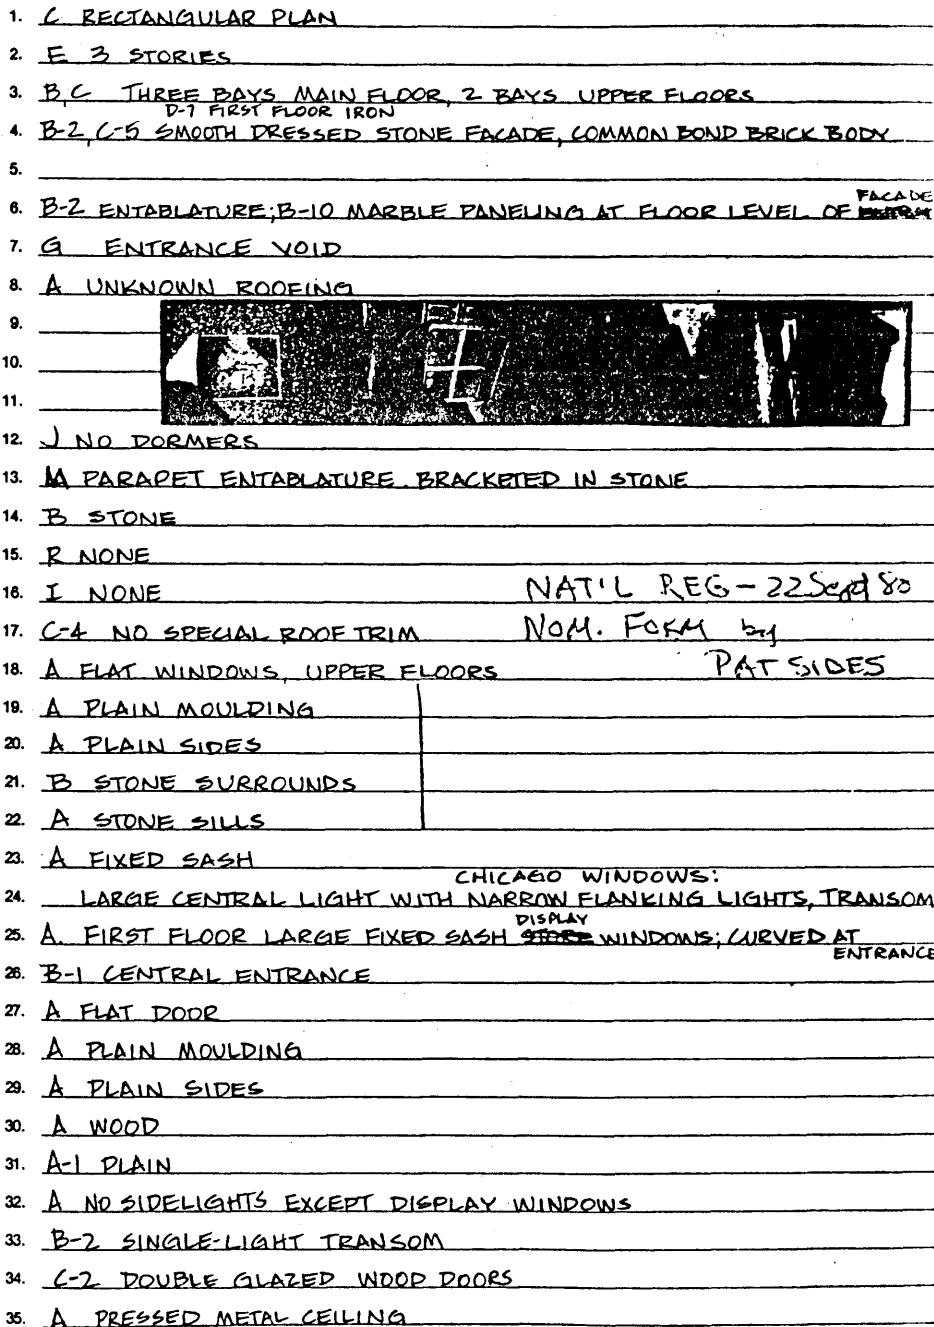 1. C RECTANGULAR PLAN
2. E 3 STORIES
3. B,C THREE BAYS MAIN FLOOR, 2 BAYS UPPER FLOORS
D-7 FIRST FLOOR IRON
4. B-2, C-5 SMOOTH DRESSED STONE FACADE, COMMON BOND BRICK BODY
5.
6. B-2 ENTABLATURE; B-10 MARBLE PANELING AT FLOOR LEVEL OF FACADE
7. G ENTRANCE VOID
8. A UNKNOWN ROOFING
9.
10.
11.
12. J NO DORMERS
13. M PARAPET ENTABLATURE BRACKETED IN STONE
14. B STONE
15. R NONE
16. I NONE NAT'L REG - 22 Sept 80
17. C-4 NO SPECIAL ROOF TRIM NOM. FORM by
18. A FLAT WINDOWS, UPPER FLOORS PAT SIDES
19. A PLAIN MOULDING
20. A PLAIN SIDES
21. B STONE SURROUNDS
22. A STONE SILLS
23. A FIXED SASH
CHICAGO WINDOWS:
24. LARGE CENTRAL LIGHT WITH NARROW FLANKING LIGHTS, TRANSOM
DISPLAY
25. A. FIRST FLOOR LARGE FIXED SASH STORE WINDOWS; CURVED AT
ENTRANCE
26. B-1 CENTRAL ENTRANCE
27. A FLAT DOOR
28. A PLAIN MOULDING
29. A PLAIN SIDES
30. A WOOD
31. A-1 PLAIN
32. A NO SIDELIGHTS EXCEPT DISPLAY WINDOWS
33. B-2 SINGLE-LIGHT TRANSOM
34. C-2 DOUBLE GLAZED WOOD DOORS
35. A PRESSED METAL CEILING